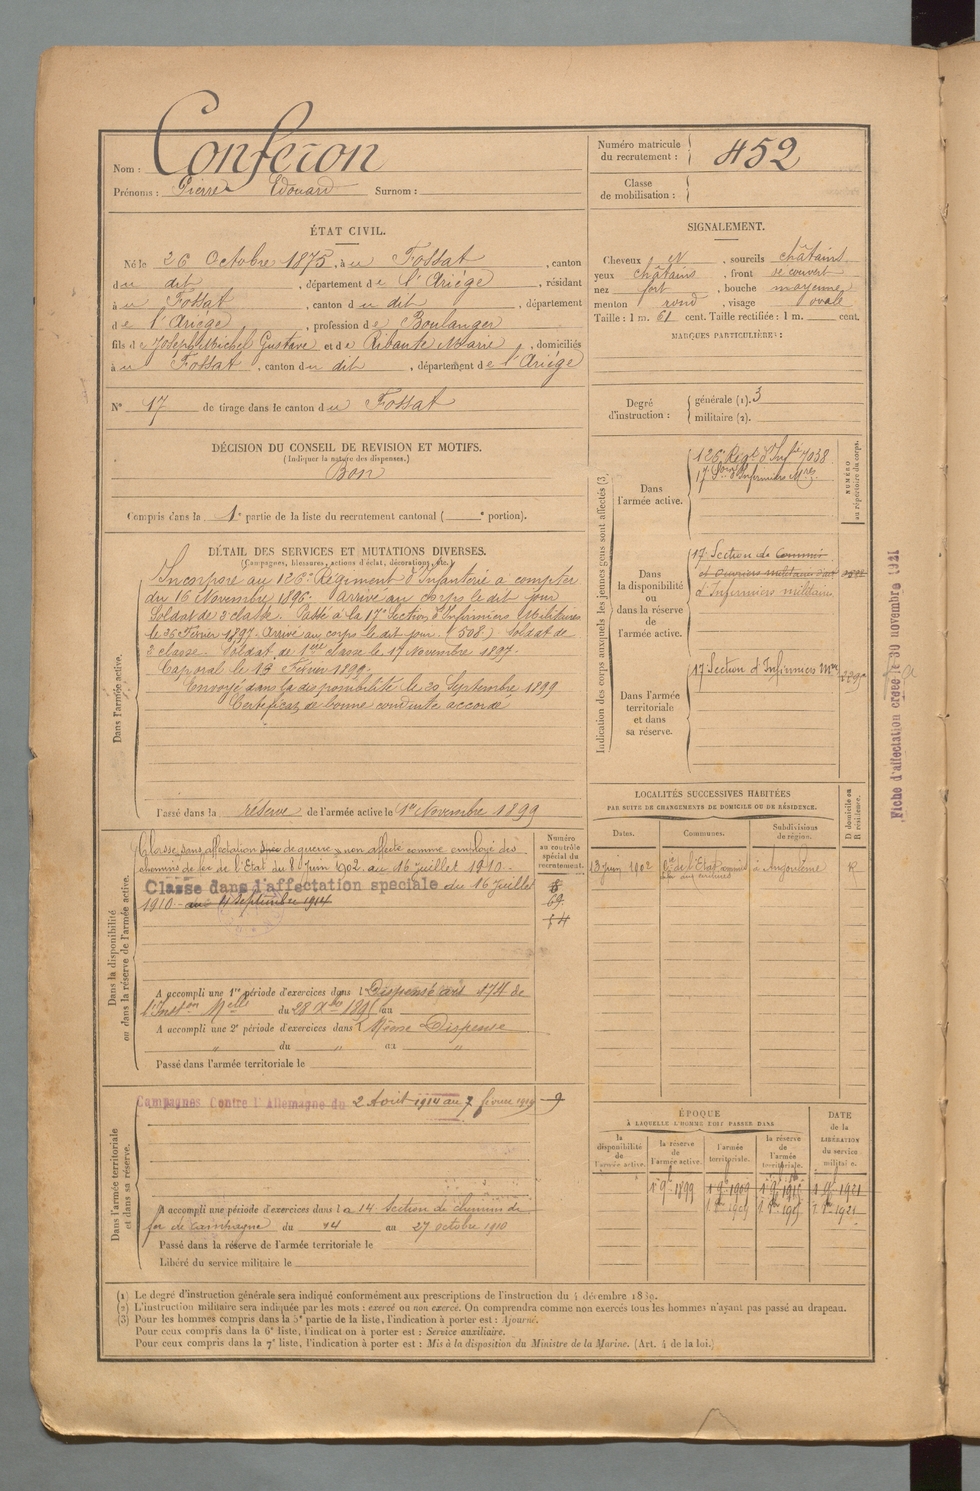 Nom : Conferon
Prénoms : Pierre Edouard Surnom :
Numéro matricule du recrutement : 452
Classe de mobilisation :
ÉTAT CIVIL.
Né le 26 Octobre 1875, à u Fossat, canton
du dit, département de l'Ariège, résidant
à u Fossat, canton du dit, département
de l'Ariège, profession de Boulanger
fils de Joseph Michel Gustave et de Ribaute Marie, domiciliés
à u Fossat, canton du dit, département de l'Ariège
N° 17 de tirage dans le canton du Fossat
SIGNALEMENT.
Cheveux N, sourcils châtains
yeux châtains, front découvert
nez fort, bouche moyenne
menton rond, visage ovale
Taille : 1 m. 61 cent. Taille rectifiée : 1 m. cent.
MARQUES PARTICULIÈRES :
Degré d'instruction : générale (1). 3
militaire (2).
DÉCISION DU CONSEIL DE REVISION ET MOTIFS.
(Indiquer la nature des dispenses.)
Bon
Compris dans la 1e partie de la liste du recrutement cantonal ( e portion).
DÉTAIL DES SERVICES ET MUTATIONS DIVERSES.
(Campagnes, blessures, actions d'éclat, décorations, etc.)
Dans l'armée active.
Incorporé au 126e Régiment d'Infanterie à compter
du 16 Novembre 1896. Arrivé au corps le dit jour
Soldat de 2e classe. Passé à la 17e Section d'Infirmiers Militaires
le 26 Février 1897. Arrivé au corps le dit jour. (508.) Soldat de
2e classe. Soldat de 1ère classe le 17 Novembre 1897.
Caporal le 19 Février 1899.
Envoyé dans la disponibilité le 20 Septembre 1899
Certificat de bonne conduite accordé
Passé dans la réserve de l'armée active le 1er Novembre 1899
Indication des corps auxquels les jeunes gens sont affectés (3)
NUMÉRO au répertoire du corps.
Dans l'armée active.
126e Régt d'Inftie 7038
17e Son d'Infirmiers Mres
Dans la disponibilité ou dans la réserve de l'armée active.
17e Section de Commis
et Ouvriers militaires d'ad
d'Infirmiers militaires
Dans l'armée territoriale et dans sa réserve.
17 Section d'Infirmiers Mres
Fiche d'affectation créée le 30 novembre 1921
LOCALITÉS SUCCESSIVES HABITÉES
PAR SUITE DE CHANGEMENTS DE DOMICILE OU DE RÉSIDENCE.
Dates. Communes. Subdivisions de région. D domicile ou R résidence.
13 juin 1902 à Angoulême R
Dans la disponibilité ou dans la réserve de l'armée active.
Numéro au contrôle spécial du recrutement.
Classé sans affectation de guerre, non affecté comme employé des
chemins de fer de l'Etat du 8 Juin 1902 au 16 juillet 1910.
Classé dans l'affectation spéciale du 16 Juillet
1910 au 4 Septembre 1914
A accompli une 1re période d'exercices dans l Dispensé art 174 de
l'Inston Melle du 28 Xbre 1895 au
A accompli une 2e période d'exercices dans l Même Dispense
" du " au "
Passé dans l'armée territoriale le
Dans l'armée territoriale et dans sa réserve.
Campagnes Contre l'Allemagne du 2 Août 1914 au 7 février 1919
A accompli une période d'exercices dans la 14 Section de chemins de
fer de campagne du 14 au 27 octobre 1910
Passé dans la réserve de l'armée territoriale le
Libéré du service militaire le
ÉPOQUE
À LAQUELLE L'HOMME DOIT PASSER DANS
la disponibilité de l'armée active. la réserve de l'armée active. l'armée territoriale. la réserve de l'armée territoriale.
DATE de la LIBÉRATION du service militaire.
(1) Le degré d'instruction générale sera indiqué conformément aux prescriptions de l'instruction du 4 décembre 1889.
(2) L'instruction militaire sera indiquée par les mots : exercé ou non exercé. On comprendra comme non exercés tous les hommes n'ayant pas passé au drapeau.
(3) Pour les hommes compris dans la 5e partie de la liste, l'indication à porter est : Ajourné.
Pour ceux compris dans la 6e liste, l'indication à porter est : Service auxiliaire.
Pour ceux compris dans la 7e liste, l'indication à porter est : Mis à la disposition du Ministre de la Marine. (Art. 4 de la loi.)